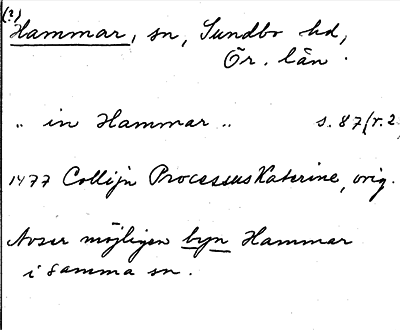 (?)
Hammar, sn, Sundbo hd,
Ör. län.
„ in Hammar „ s. 87 (r. 2
1477 Collijn Processus Katerine, orig.
Avser möjligen byn Hammar
i samma sn.